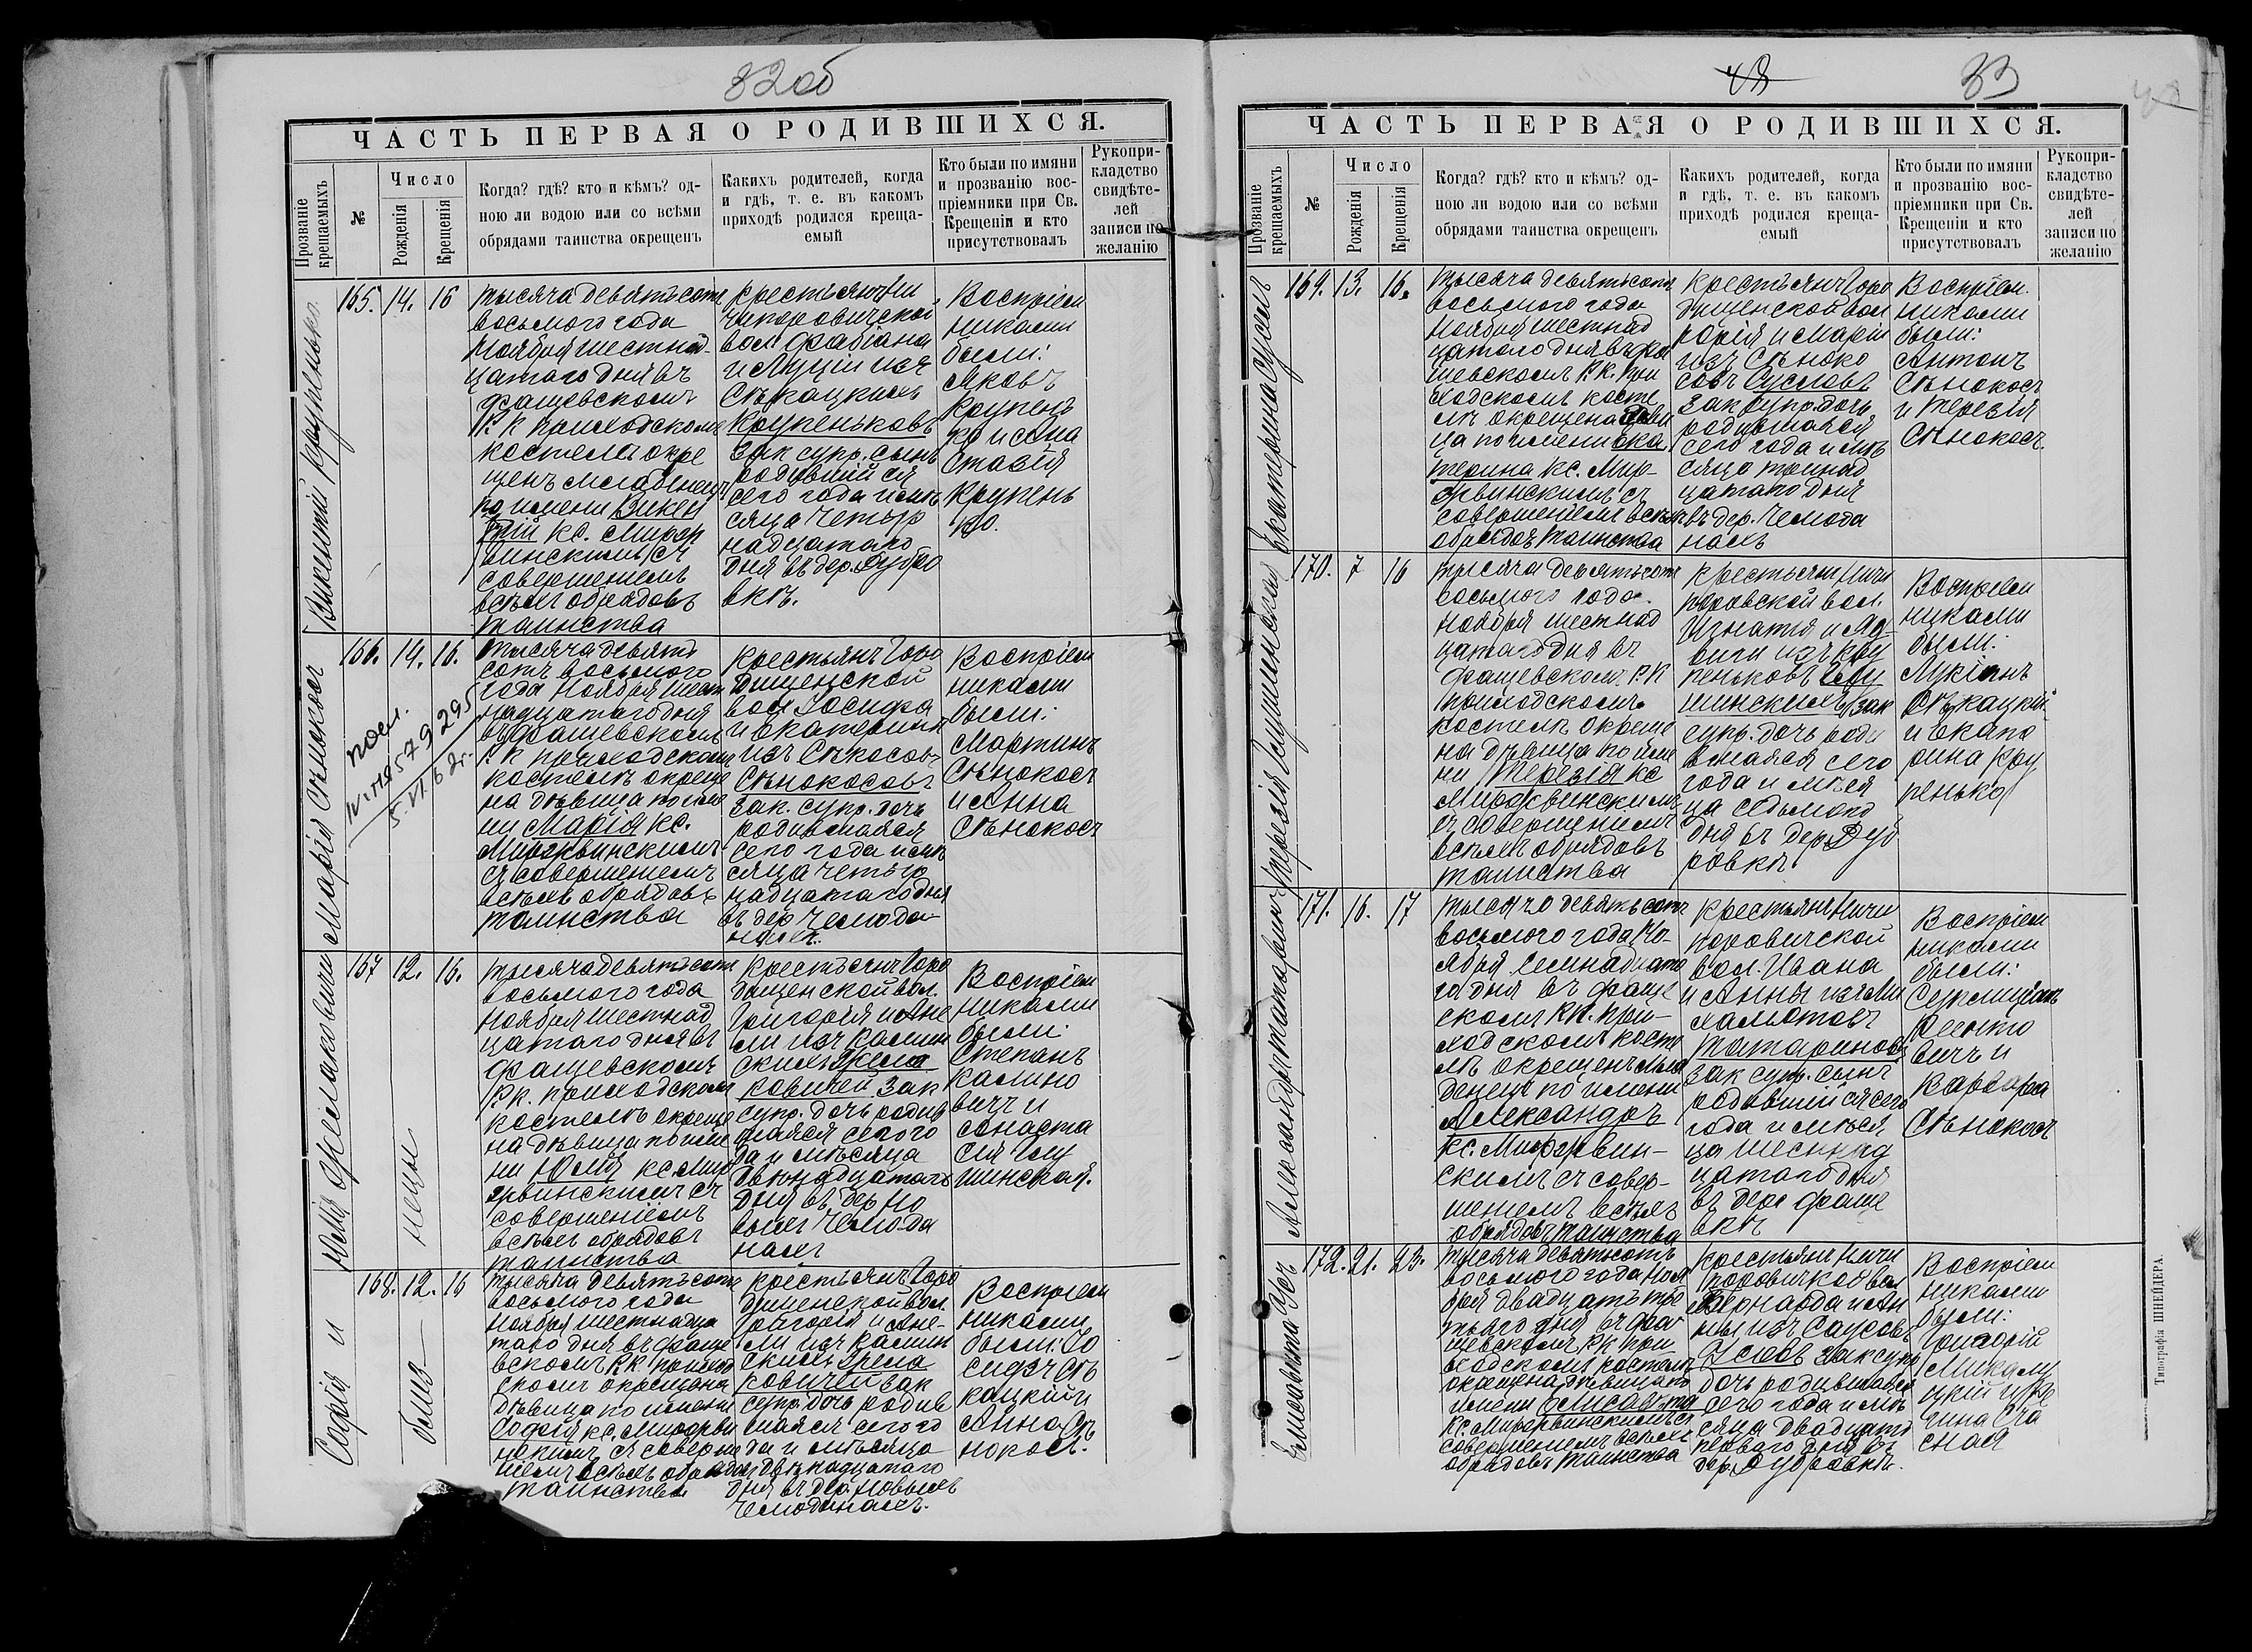 32об
ЧАСТЬ ПЕРВАЯ О РОДИВШИХСЯ.
Прозваніе крещаемыхъ
№
Число
Рожденія
Крещенія
Когда? гдѣ? кто и кѣмъ? од-
ною ли водою или со всѣми
обрядами таинства окрещенъ
Какихъ родителей, когда
и гдѣ, т. е. въ какомъ
приходѣ родился креща-
емый
Кто были по имяни
и прозванію вос-
пріемники при Св.
Крещеніи и кто
присутствовалъ
Рукопри-
кладство
свидѣте-
лей
записи по
желанію
Викентій Крупенько
165. 14. 16
тысяча девятьсотъ
восьмого года
Ноября шестнад-
цатаго дня въ
Фащевскомъ
Р. К приходскомъ
костелѣ окре
щенъ младенецъ
по имени Викен
тій кс. Мирзр
винскимъ съ
совершеніемъ
всѣхъ обрядовъ
таинства
крестьянъ Ни
чипоровичской
вол Фабіана
и Луціи изъ
Сѣкацкихъ
Крупеньковъ
зак супр. сынъ
родившійся
сего года и мѣ
сяца четыр
надцатаго
дня въ дер. Дубро
вкѣ.
Воспріем
никами
были:
Яковъ
Крупень
ко и Анна
Ставія
Крупень
ко.
Марія Сѣнокосъ
166. 14. 16.
посл.
5.VI.62г.
тысяча девять
сотъ восьмого
года Ноября шест
надцатаго дня
въ Фащевскомъ
Р К приходскомъ
костелѣ окреще
на дѣвица по име
ни Марія кс.
съ совершеніемъ
всѣхъ обрядовъ
таинства
крестьянъ Горо
дищенской
вол Іосифа
и Екатерины
изъ
Сѣнокосовъ
зак. супр. дочь
родившаяся
сего года и мѣ
сяца четыр
надцатаго дня
въ дер Чемода-
нахъ.
Воспріем
никами
были:
Мартинъ
Сѣнокосъ
и Анна
Сѣнокосъ
Юлія
167 12. 16.
тысяча девятьсотъ
восьмого года
Ноября шестнад
цатаго дня въ
Фащевскомъ
Р К. приходскомъ
костелѣ окреще
на дѣвица по име
ни Юлія кс. Мир
зрвинскимъ съ
совершеніемъ
всѣхъ обрядовъ
таинства
крестьянъ Горо
дищенской вол.
Григорія и Ане
ли изъ Калин
скихъ
ковичей зак
супр. дочь родив
шаяся сего го
да и мѣсяца
двѣнадцатаго
дня въ дер Но
выхъ Чемода
нахъ
Воспріем
никами
были:
Степанъ
Калино
вичъ и
Анаста
сія
шинская.
Софія и
168. 12. 16
тысяча девятьсотъ
восьмого года
Ноября шестнадца
таго дня въ Фаще
вскомъ Р.К. приход
скомъ окрещена
дѣвица по имени
Софія кс. Мирзрви
нскимъ съ соверше
ніемъ всѣхъ обрядовъ
таинства
крестьянъ Горо
дищенской вол.
Григорія и Ане-
ли изъ Калин
скихъ
ковичей зак
супр. дочь родив
шаяся сего го
да и мѣсяца
двѣнадцатаго
дня въ дер. Новыхъ
Чемоданахъ.
Воспріем
никами
были: Іо
сифъ Сѣ
кацкій и
Анна Сѣ
нокосъ.
48 33
ЧАСТЬ ПЕРВАЯ О РОДИВШИХСЯ.
Прозваніе крещаемыхъ
№
Число
Рожденія
Крещенія
Когда? гдѣ? кто и кѣмъ? од-
ною ли водою или со всѣми
обрядами таинства окрещенъ
Какихъ родителей, когда
и гдѣ, т. е. въ какомъ
приходѣ родился креща-
емый
Кто были по имяни
и прозванію вос-
пріемники при Св.
Крещеніи и кто
присутствовалъ
Рукопри-
кладство
свидѣте-
лей
записи по
желанію
Екатерина
169. 13. 16.
тысяча девятьсотъ
восьмого года
Ноября шестнад
цатаго дня въ Фа
щевскомъ Р.К. при
ходскомъ косте
лѣ окрещена дѣви
ца по имени Ека
терина кс. Мир-
зрвинскимъ съ
совершеніемъ всѣхъ
обрядовъ таинства
крестьянъ Горо
дищенской вол
и Маріи
изъ Сѣноко
совъ
зак супр. дочь
родившаяся
сего года и мѣ
сяца тринад
цатаго дня
въ дер. Чемода
нахъ
Воспріем.
никами
были:
Антонъ
Сѣнокосъ
и Терезія
Сѣнокосъ.
Терезія
170. 7 16
тысяча девятьсотъ
восьмого года
Ноября шестнад
цатаго дня въ
Фащевскомъ Р. К
приходскомъ
костелѣ окреще
на дѣвица по име
ни Терезія кс
съ совершеніемъ
всѣхъ обрядовъ
таинства
крестьянъ Ничи
поровской вол.
Игнатія и Яд-
виги изъ Кру
пеньковъ
шинскихъ зак
супр. дочь роди
вшаяся сего
года и мѣся
ца седьмого
дня въ дер. Дуб
ровкѣ.
Воспріем
никами
были:
Лукіанъ
Сѣкацкій
и Екате
рина Кру
пенько
Александръ Татариновъ
171. 16. 17
тысяча девятьсотъ
восьмого года Но-
ября семнадцата
го дня въ Фаще
скомъ Р.К. при-
ходскомъ косте
лѣ окрещенъ мла
денецъ по имени
Александръ
кс. Мирзрвин-
скимъ съ совер-
шеніемъ всѣхъ
обрядовъ таинства
крестьянъ Ничи
поровичской
вол. Ивана
и Анны изъ Ми
халютовъ
Татариновъ
зак супр. сынъ
родившійся сего
года и мѣся
ца шестнад
цатаго дня
въ дер Фаще
вкѣ
Воспріем
никами
были:
вичъ и
Варвара
Сѣнокосъ
Елисавета
172. 21. 23.
тысяча девятьсотъ
восьмого года Ноя
бря двадцать тре
тьяго дня въ Фа
щевскомъ Р.К при
ходскомъ костелѣ
окрещена дѣвица по
имени Елисавета
кс. Мирзрвинскимъ съ
совершеніемъ всѣхъ
обрядовъ таинства
крестьянъ Ничи
поровичской вол
Леонарда и Ан
ны изъ
зак супр
дочь родившаяся
сего года и мѣ
сяца двадцать
перваго дня въ
дер. Дубровкѣ.
Воспріем
никами
были:
Григорій
Типографія ШНЕЙДЕРА